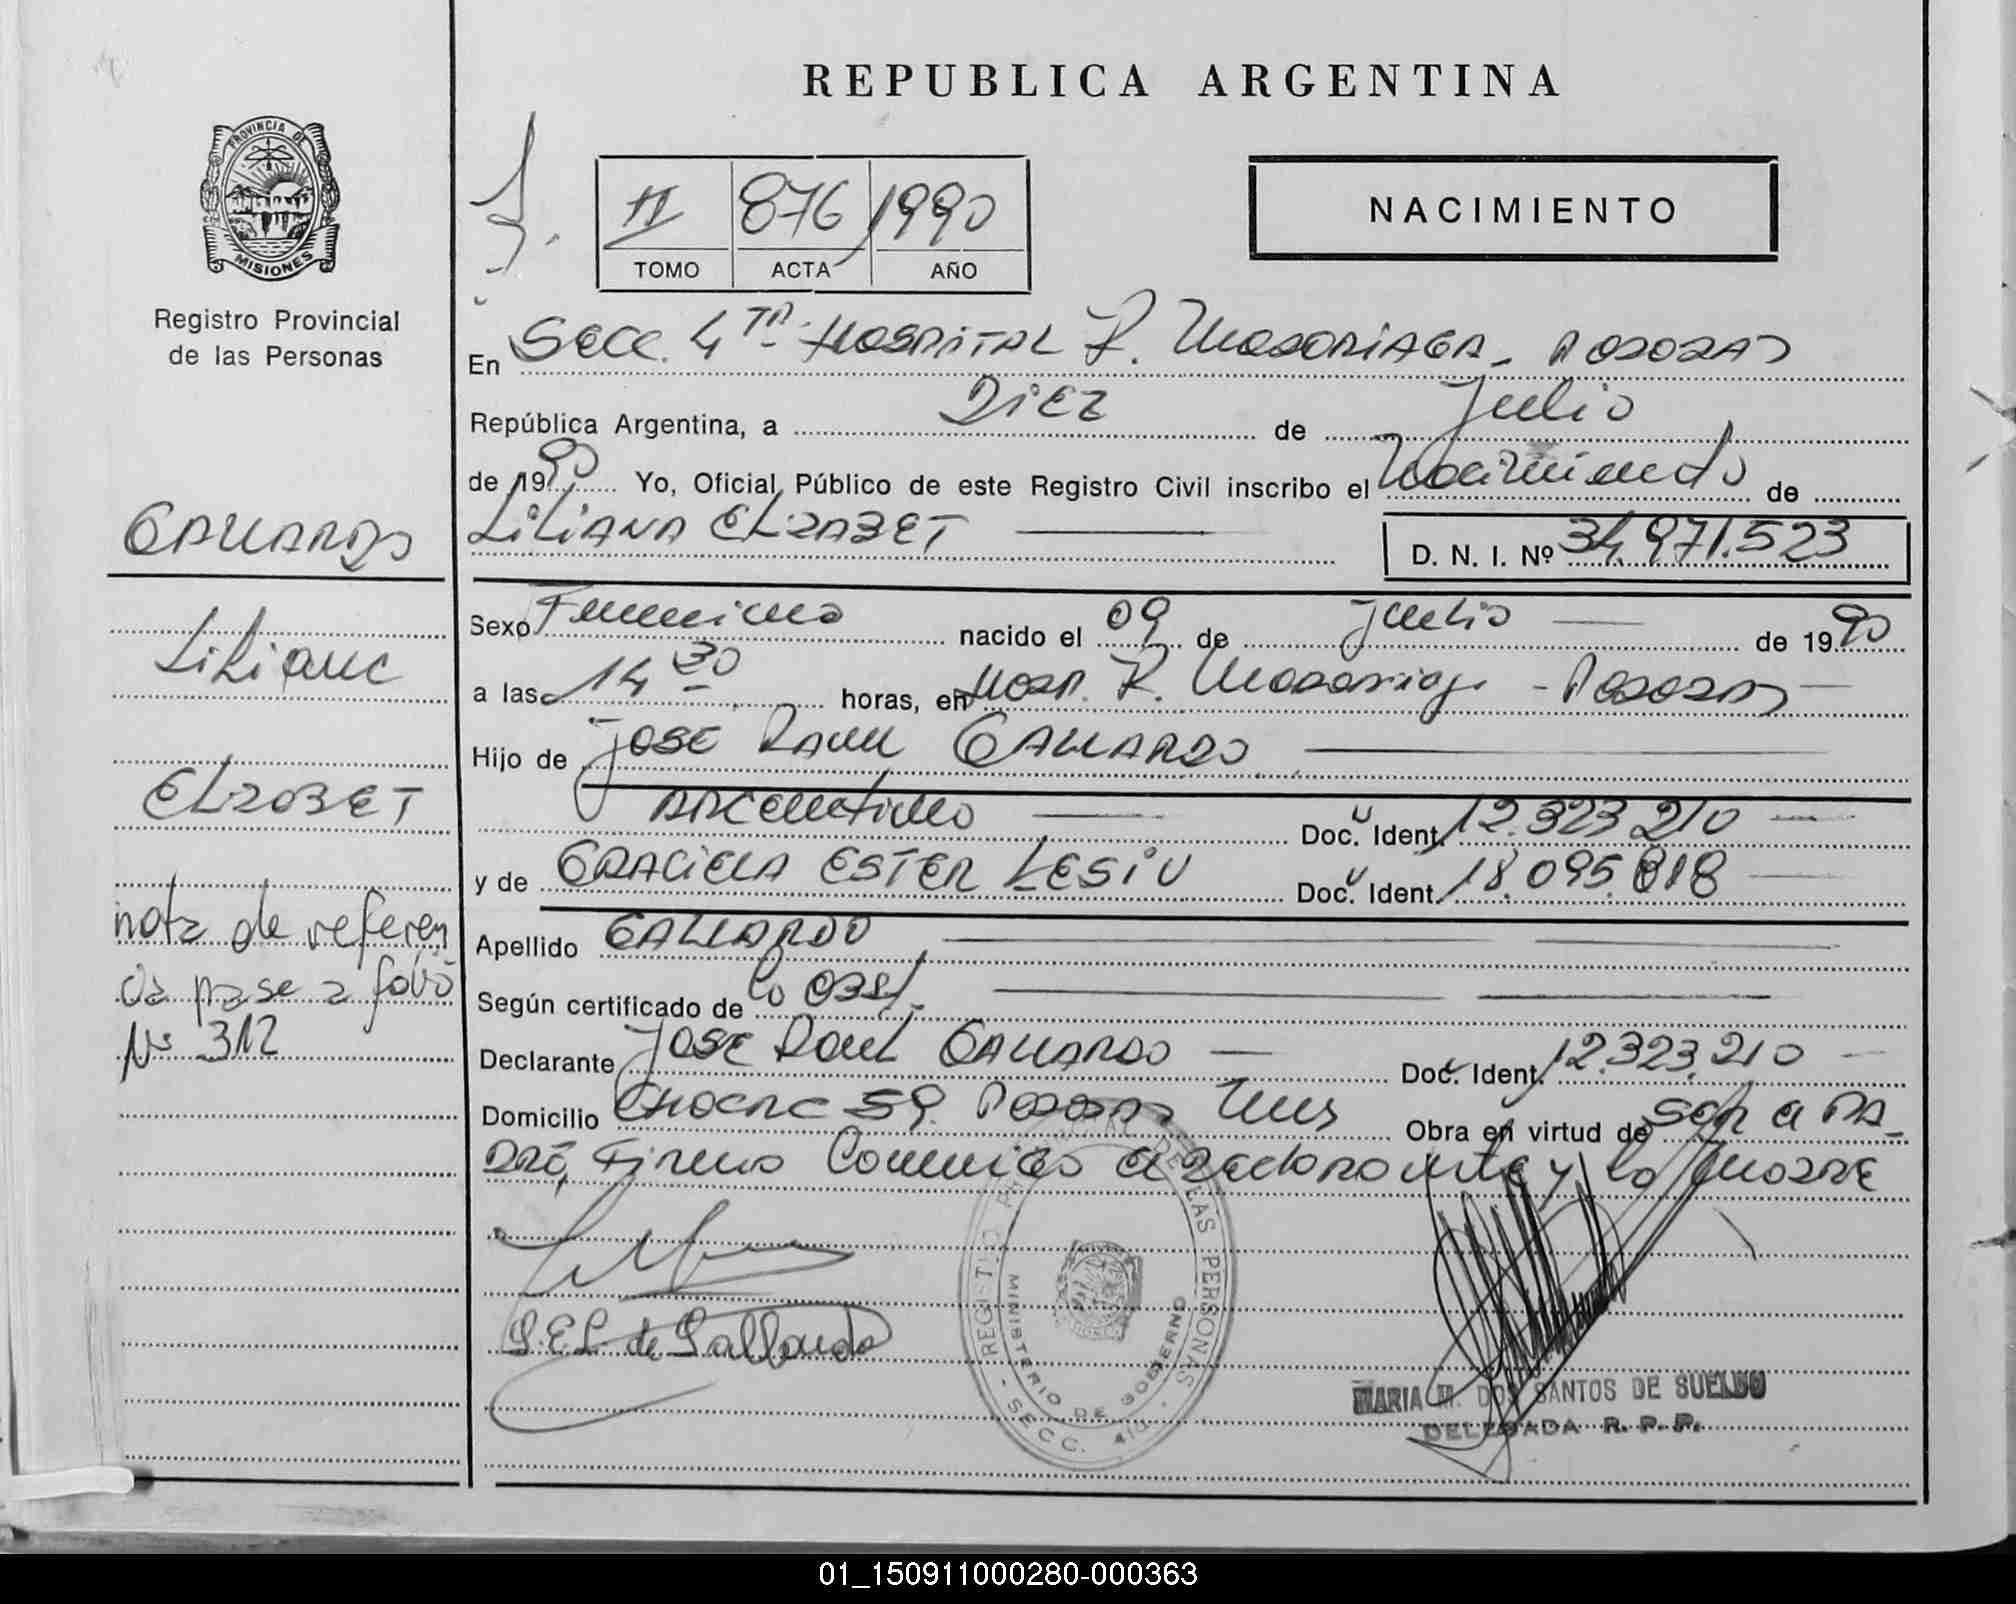 REPUBLICA ARGENTINA
PROVINCIA DE
MISIONES
Registro Provincial
de las Personas
II 876 1990
TOMO ACTA AÑO
NACIMIENTO
En Secc. 4TA. HOSPITAL R. Madariaga - POSADAS
República Argentina, a DIEZ de Julio
de 1990 Yo, Oficial Público de este Registro Civil inscribo el Nacimiento de
LILIANA ELIZABET
D. N. I. Nº 34.971.523
GALLARDO
Liliana
ELIZABET
nota de referen
cia pase a folio
Nº 312
Sexo Femenino nacido el 09 de Julio de 1990
a las 14 30 horas, en Hosp. R. Madariaga - POSADAS
Hijo de JOSE RAUL GALLARDO
ARGentino Doc. Ident. 12.323.210
y de GRACIELA ESTER LESIU Doc. Ident. 18.095.818
Apellido GALLARDO
Según certificado de la Obst.
Declarante JOSE RAUL GALLARDO Doc. Ident. 12.323.210
Domicilio 59. POSADAS Mns Obra en virtud de ser el PA-
DRE, Firma Conmigo el declarante y la MADRE
G.E.L. de Gallardo
REGISTRO PROVINCIAL DE LAS PERSONAS
MINISTERIO DE GOBIERNO
- SECC. 4ta. -
MARIA M. DOS SANTOS DE SUELDO
DELEGADA R. P. P.
01_150911000280-000363